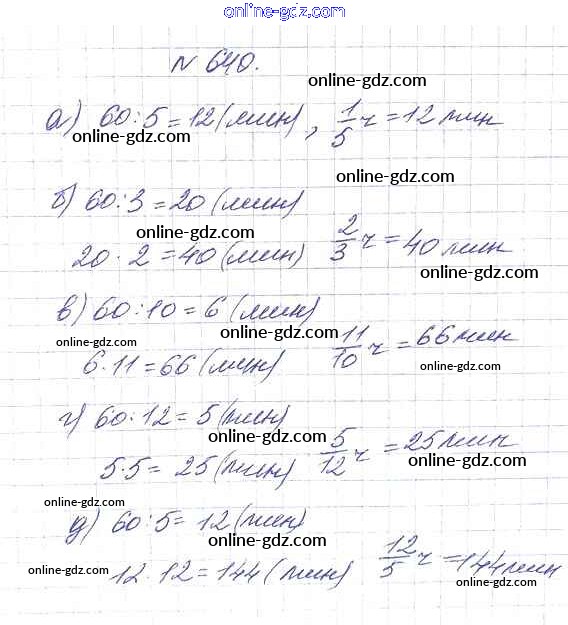 online-gdz.com
N 640.
online-gdz.com
а) 60:5=12(мин), 1/5 ч=12 мин
online-gdz.com
б) 60:3=20 (мин)
online-gdz.com
20·2=40 (мин) 2/3 ч=40 мин
online-gdz.com
в) 60:10=6 (мин)
online-gdz.com online-gdz.com
6·11=66 (мин) 11/10 ч=66 мин
online-gdz.com
г) 60:12=5 (мин)
online-gdz.com
5·5=25 (мин) 5/12 ч=25 мин
online-gdz.com
online-gdz.com
д) 60:5=12 (мин)
online-gdz.com
12·12=144 (мин) 12/5 ч=144 мин
online-gdz.com